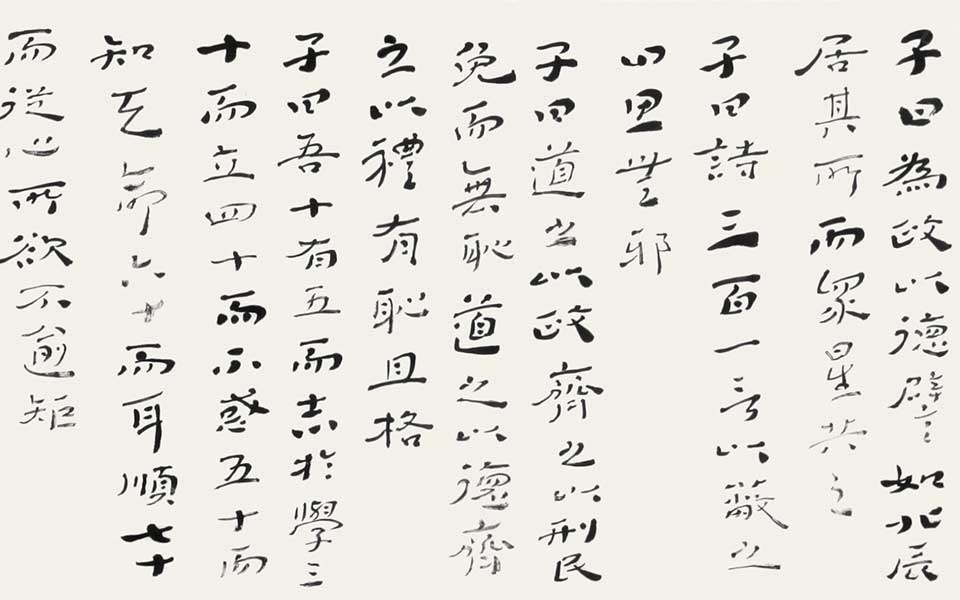 子曰為政以德譬如北辰
居其所而眾星共之
子曰詩三百一言以蔽之
曰思無邪
子曰道之以政齊之以刑民
免而無恥道之以德齊
之以禮有恥且格
子曰吾十有五而志於學三
十而立四十而不惑五十而
知天命六十而耳順七十
而從心所欲不踰矩